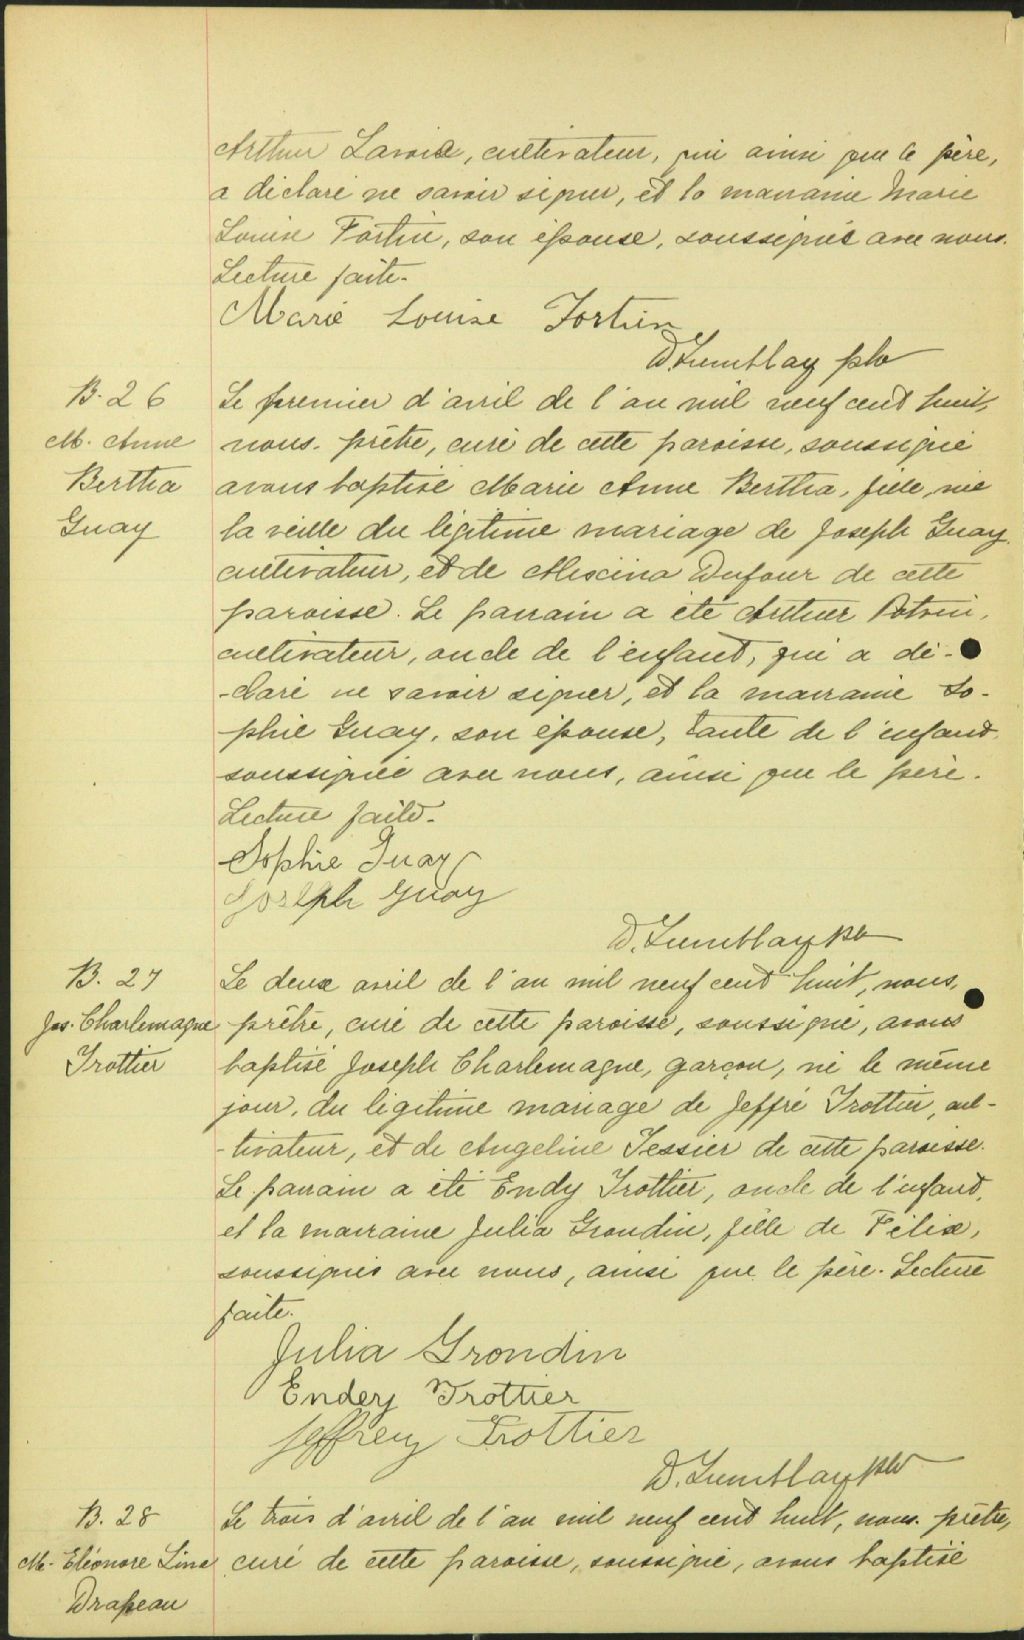 Arthur Lavoie, cultivateur, qui ainsi que le père,
a déclaré ne savoir signer, et la marraine Marie
Louise Fortin, son épouse, soussignée avec nous.
Lecture faite.
Marie Louise Fortin
D. Tremblay ptre
B. 26
M. Anne
Bertha
Guay
Le premier d'avril de l'an mil neuf cent huit,
nous prêtre, curé de cette paroisse, soussigné
avons baptisé Marie Anne Bertha, fille, née
la veille du légitime mariage de Joseph Guay
cultivateur, et de Mexina Dufour de cette
paroisse. Le parrain a été Arthur Potvin,
cultivateur, oncle de l'enfant, qui a dé-
-claré ne savoir signer, et la marraine So-
phie Guay, son épouse, tante de l'enfant
soussignée avec nous, ainsi que le père.
Lecture faite.
Sophie Guay
Joseph Guay
D. Tremblay ptre
B. 27
Jos. Charlemagne
Trottier
Le deux avril de l'an mil neuf cent huit, nous,
prêtre, curé de cette paroisse, soussigné, avons
baptisé Joseph Charlemagne, garçon, né le même
jour, du légitime mariage de Jeffré Trottier, cul-
-tivateur, et de Angeline Tessier de cette paroisse.
Le parrain a été Endy Trottier, oncle de l'enfant,
et la marraine Julia Grondin, fille de Félix,
soussignés avec nous, ainsi que le père. Lecture
faite.
Julia Grondin
Endery Trottier
Jeffrey Trottier
D. Tremblay ptre
B. 28
M. Eléonore Lina
Drapeau
Le trois d'avril de l'an mil neuf cent huit, nous prêtre,
curé de cette paroisse, soussigné, avons baptisé